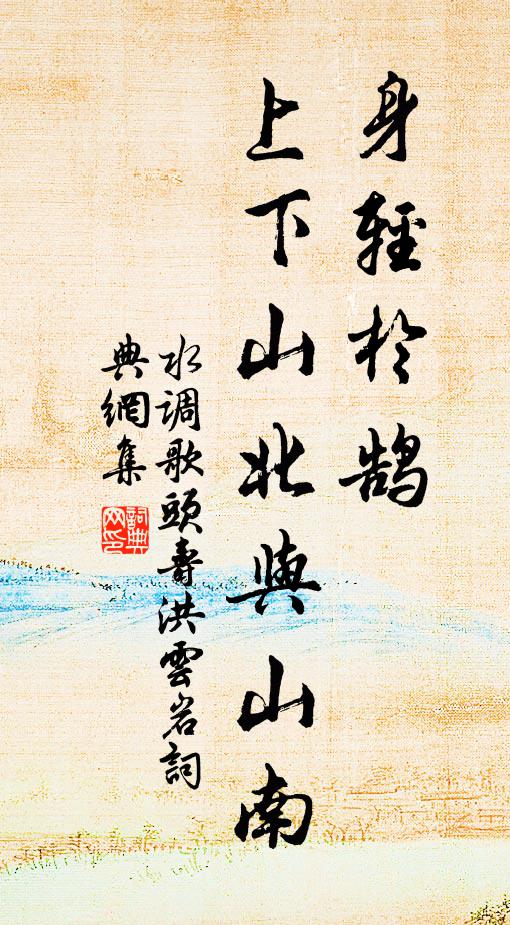 身輕於鵠
上下山北與山南
水調歌頭壽洪雲岩詞
典網集
詞典
网印